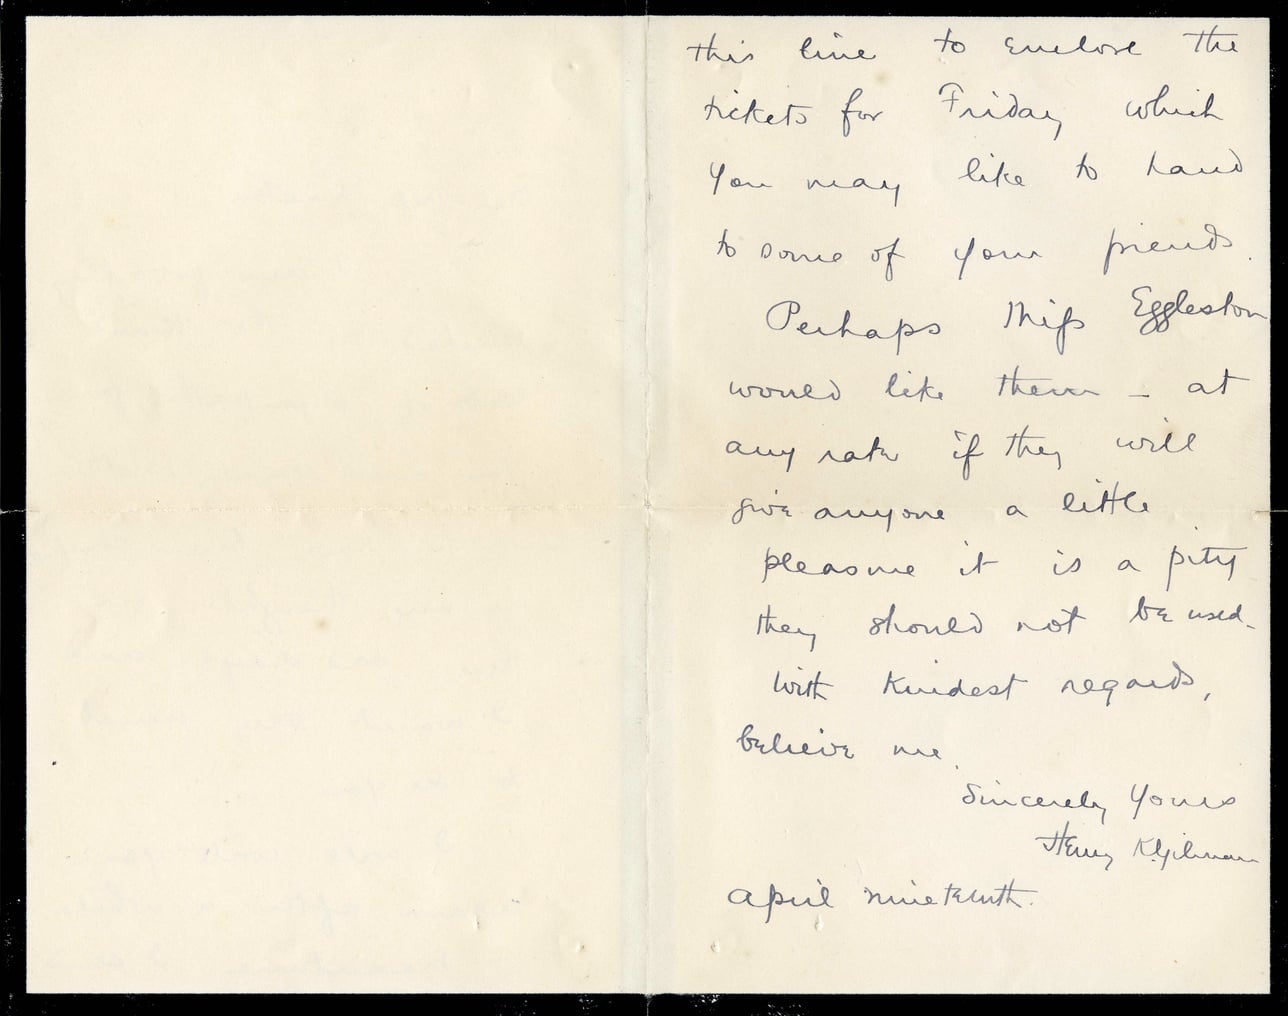 this line to enclose the
tickets for Friday which
you may like to hand
to some of your friends.
Perhaps Miss Eggleston
would like them – at
any rate if they will
give anyone a little
pleasure it is a pity
they should not be used.
With kindest regards,
believe me.
Sincerely Yours
Henry
April nineteenth.